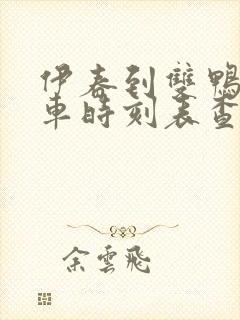 伊春到雙鴨
車時刻表查
余雲飛